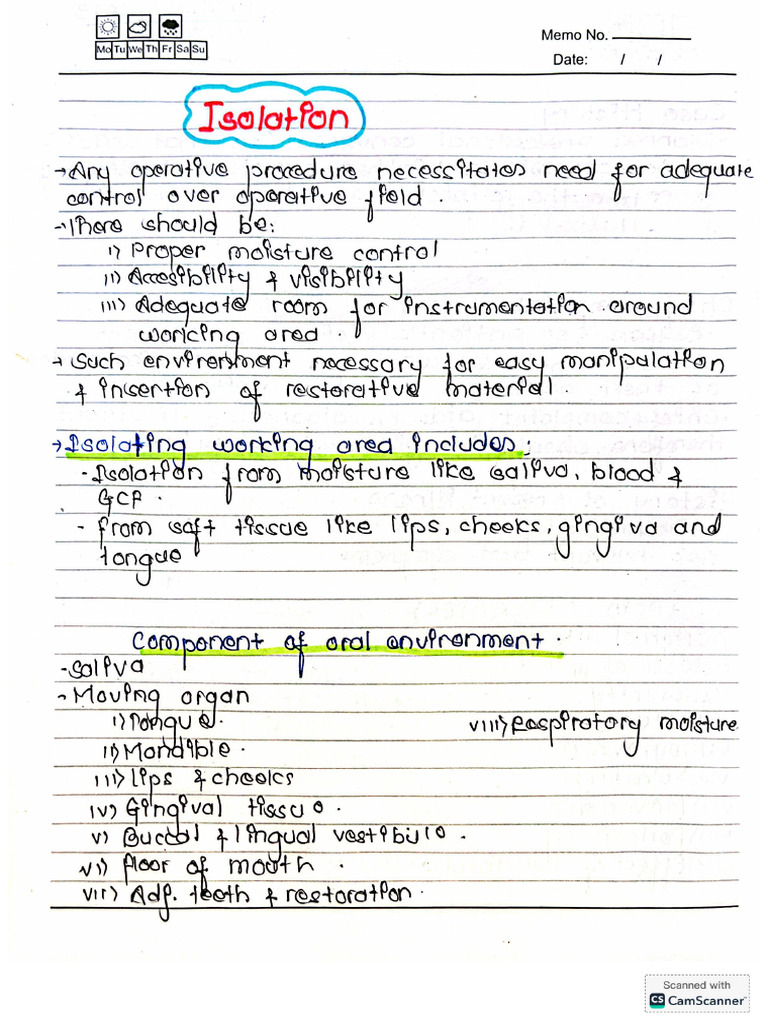 Mo Tu We Th Fr Sa Su
Memo No.
Date: / /
Isolation
→ Any operative procedure necessitates need for adequate
control over operative field.
→ There should be:
i) Proper moisture control
ii) Accesibility & visibility
iii) Adequate room for instrumentation around
working area.
→ Such envirenment necessary for easy manipulation
& insertion of restorative material.
→ Isolating working area includes:
- Isolation from moisture like saliva, blood &
GCF.
- from soft tissue like lips, cheeks, gingiva and
tongue
Component of oral environment.
- Saliva
- Moving organ
i) Tongue.
viii) Respiratory moisture
ii) Mandible.
iii) Lips & cheeks
iv) Gingival tissue.
v) Buccal & lingual vestibule.
vi) floor of mouth.
vii) Adj. teeth & restoration.
Scanned with
CS CamScanner